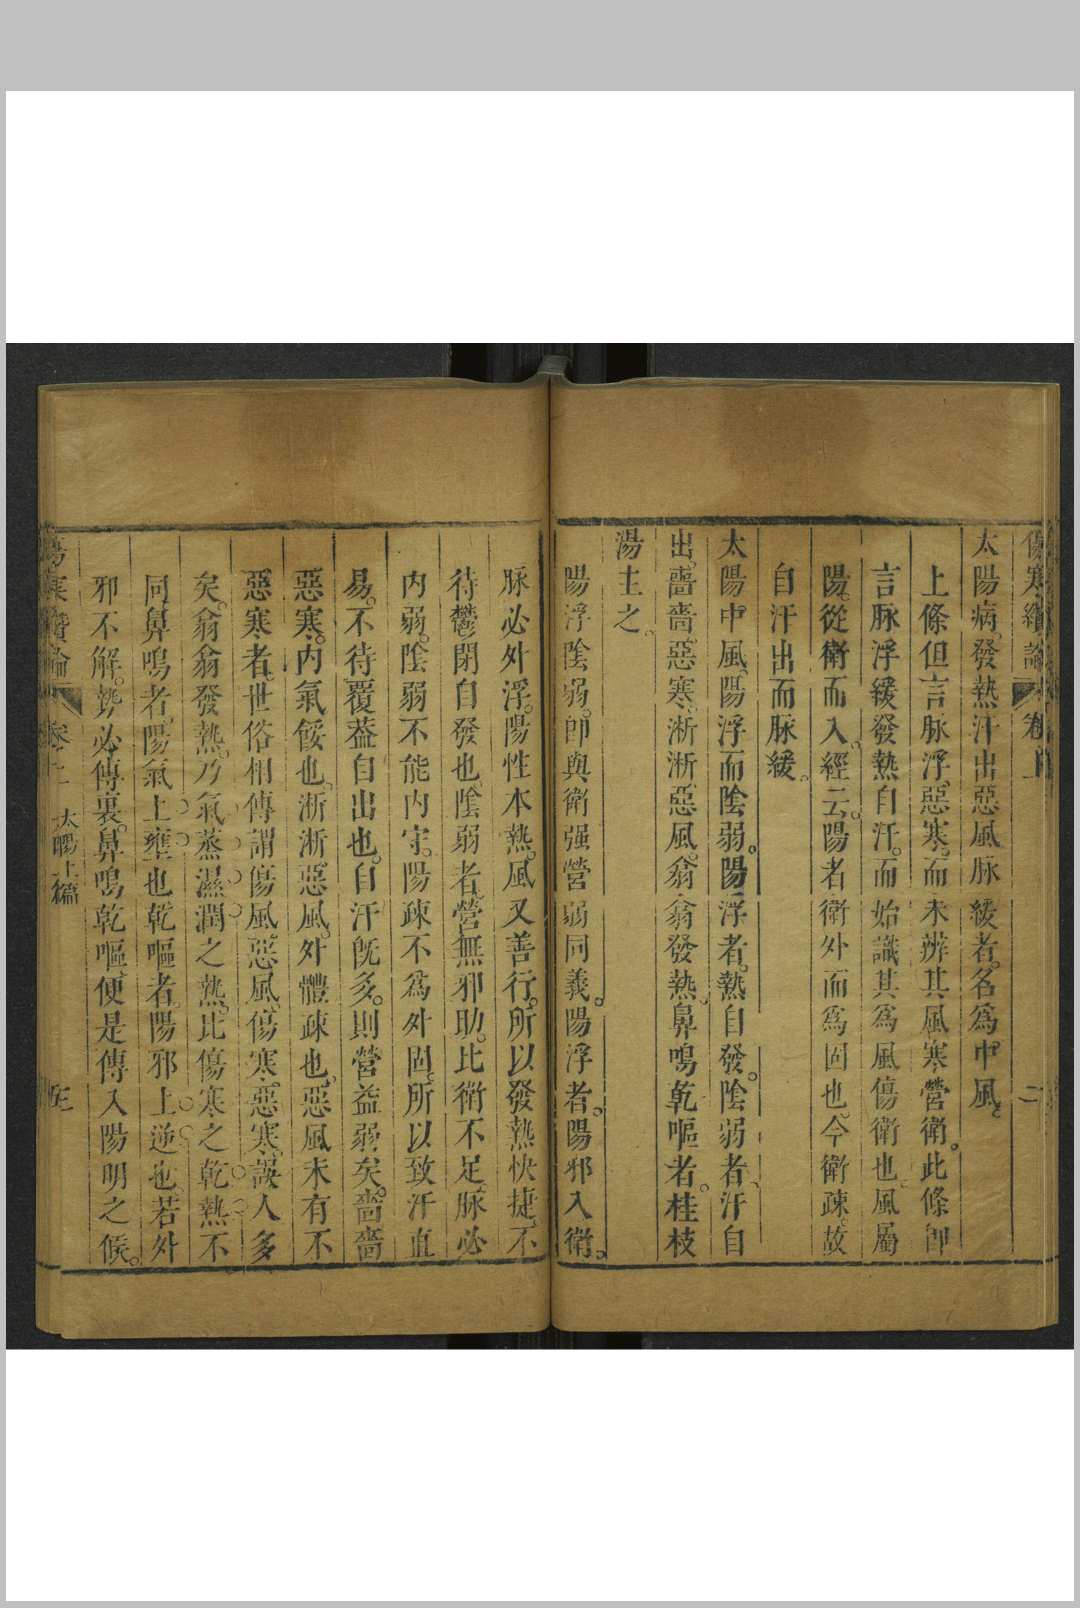 傷寒纘論 卷上 二
太陽病。發熱汗出惡風脉緩者。名爲中風。
上條但言脉浮。惡寒。而未辨其風寒營衛。此條卽
言脉浮緩發熱自汗。而始識其爲風傷衛也。風屬
陽。從衛而入。經云。陽者衛外而爲固也。今衛疎。故
自汗出而脉緩。
太陽中風。陽浮而陰弱。陽浮者。熱自發。陰弱者。汗自
出。嗇嗇惡寒。淅淅惡風。翕翕發熱。鼻鳴乾嘔者。桂枝
湯主之。
陽浮陰弱。卽與衛强營弱同義。陽浮者。陽邪入衛。
脉必外浮。陽性本熱。風又善行。所以發熱快捷。不
待鬱閉自發也。陰弱者。營無邪助。比衛不足。脉必
內弱。陰弱不能內守。陽疎不爲外固。所以致汗直
易。不待覆蓋自出也。自汗旣多。則營益弱矣。嗇嗇
惡寒。內氣餒也。淅淅惡風。外體疎也。惡風未有不
惡寒者。世俗相傳謂傷風惡風。傷寒惡寒。誤人多
矣。翕翕發熱。乃氣蒸濕潤之熱。比傷寒之乾熱不
同。鼻鳴者。陽氣上壅也。乾嘔者。陽邪上逆也。若外
邪不解。勢必傳裏。鼻鳴乾嘔。便是傳入陽明之候。
傷寒纘論 卷上 太陽上篇 三